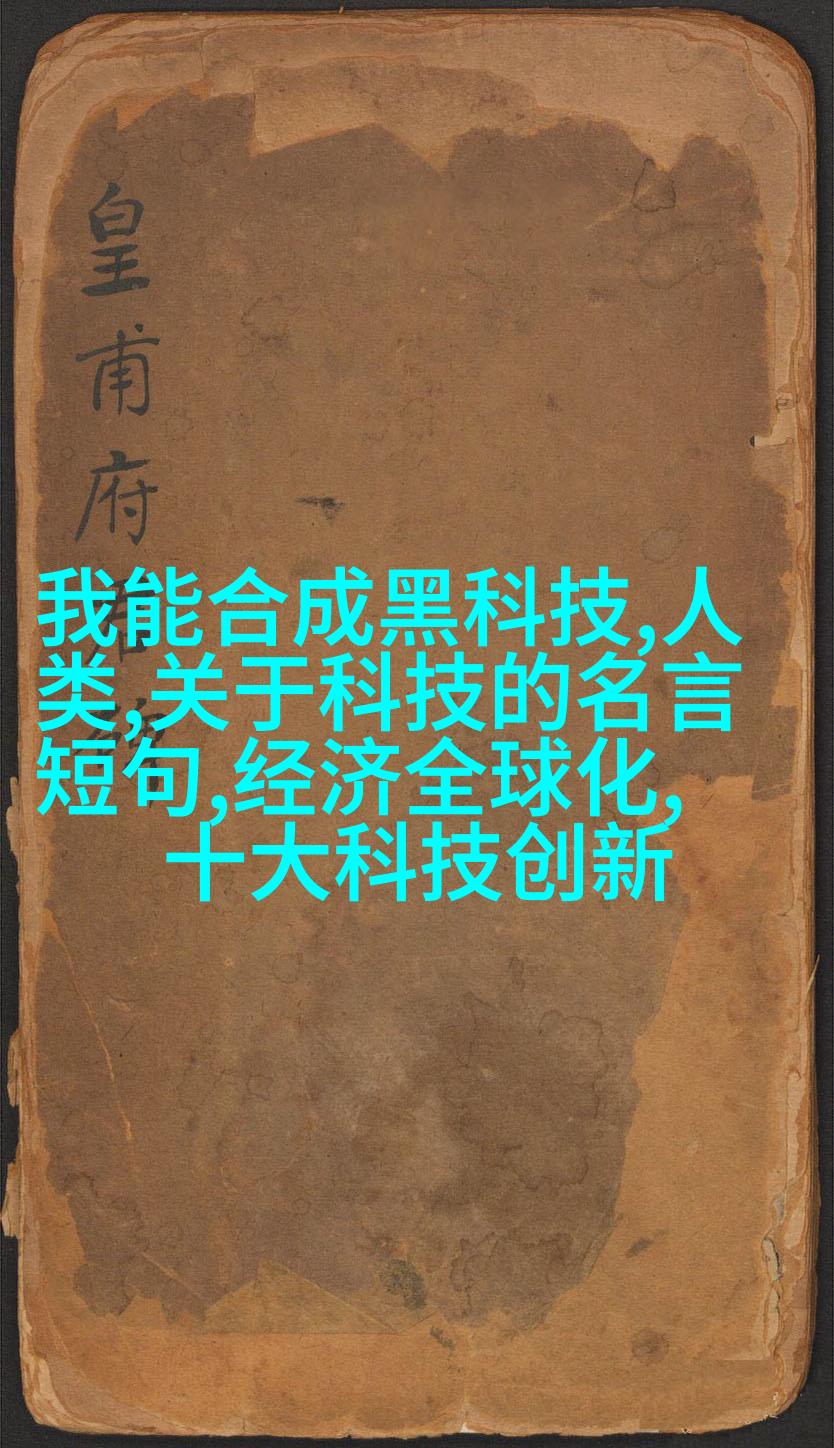 皇甫府君碑
我能合成黑科技,人
类,关于科技的名言
短句,经济全球化,
十大科技创新